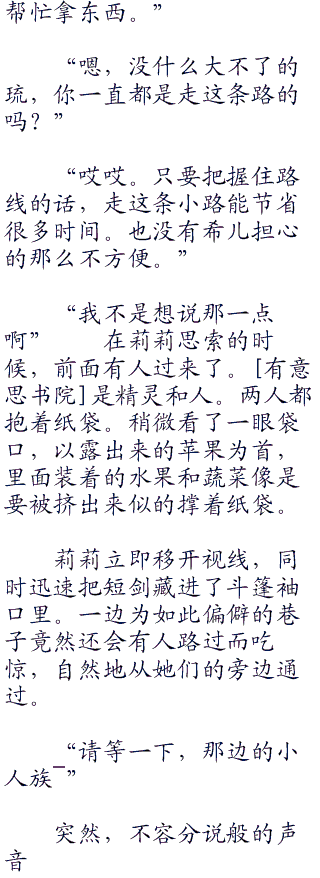 帮忙拿东西。”
“嗯，没什么大不了的
琉，你一直都是走这条路的
吗？”
“哎哎。只要把握住路
线的话，走这条小路能节省
很多时间。也没有希儿担心
的那么不方便。”
“我不是想说那一点
啊” 在莉莉思索的时
候，前面有人过来了。[有意
思书院]是精灵和人。两人都
抱着纸袋。稍微看了一眼袋
口，以露出来的苹果为首，
里面装着的水果和蔬菜像是
要被挤出来似的撑着纸袋。
莉莉立即移开视线，同
时迅速把短剑藏进了斗篷袖
口里。一边为如此偏僻的巷
子竟然还会有人路过而吃
惊，自然地从她们的旁边通
过。
“请等一下，那边的小
人族¯”
突然，不容分说般的声
音